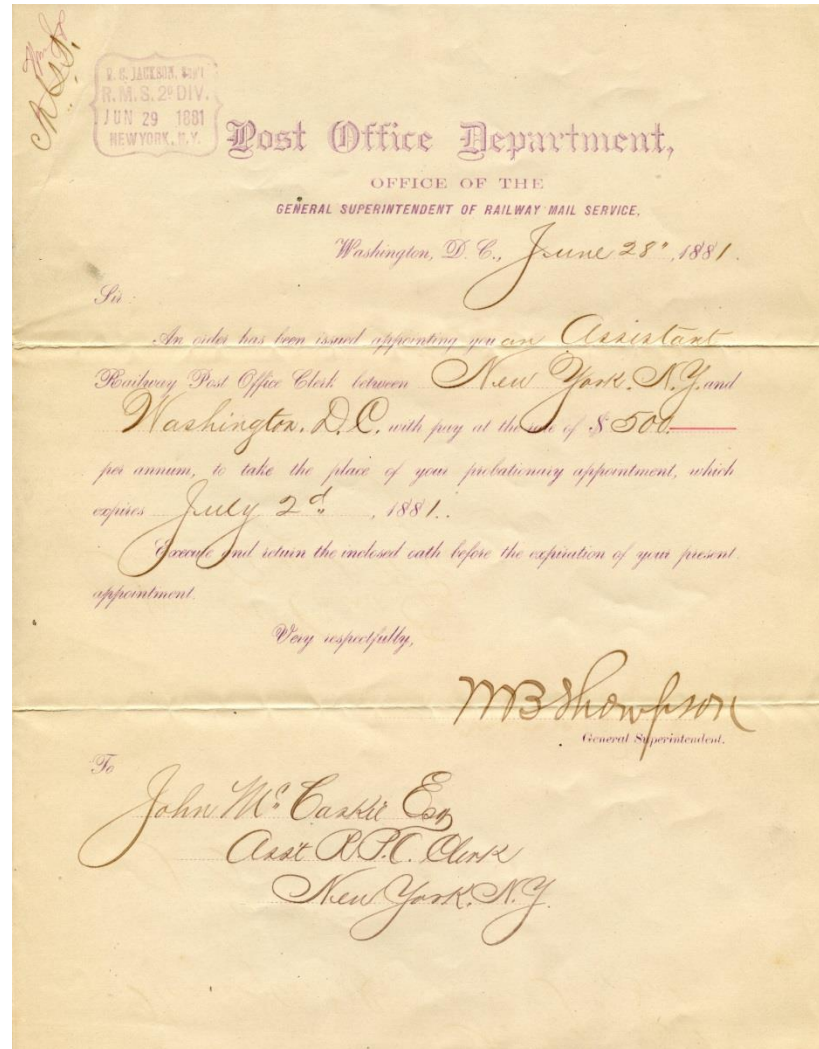 R. C. JACKSON, Sup't
R.M.S. 2ᴰ DIV.
JUN 29 1881
NEW YORK, N.Y.
Post Office Department,
OFFICE OF THE
GENERAL SUPERINTENDENT OF RAILWAY MAIL SERVICE,
Washington, D. C., June 28", 1881.
Sir:
An order has been issued appointing you an Assistant
Railway Post Office Clerk between New York. N.Y. and
Washington. D.C. with pay at the rate of $ 500.
per annum, to take the place of your probationary appointment, which
expires July 2d, 1881.
Execute and return the inclosed oath before the expiration of your present
appointment.
Very respectfully,
W B Thompson
General Superintendent.
To
John Mc Caskie Esq
Asst R.P.O. Clerk
New York. N.Y.